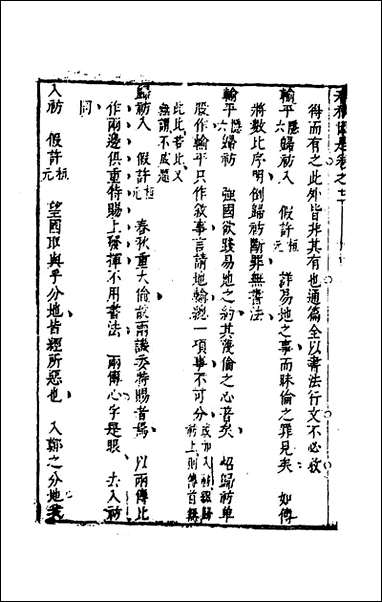 春秋因是卷之七
得而有之此外皆非其有也通篇全以書法行文不必收
輸平隱六歸祊入 假許桓元 詳易地之事而昧倫之罪見矣 如傳
將數比序明倒歸祊斷罪無書法
輸平隱六歸祊 強國欲踐易地之約其蔑倫之心著矣 照歸祊單
股作輸平只作敘事言請地輸總一項事不可分
此比者此又無謂不成題
歸祊入 假許桓元 春秋重大倫故兩譏委特賜者焉 以兩傳比
作兩邊俱重特賜上發揮不用書法 兩傳心字是眼 去入祊
同
入祊 假許桓元 望國取與乎分地皆經所惡也 入鄭之分地